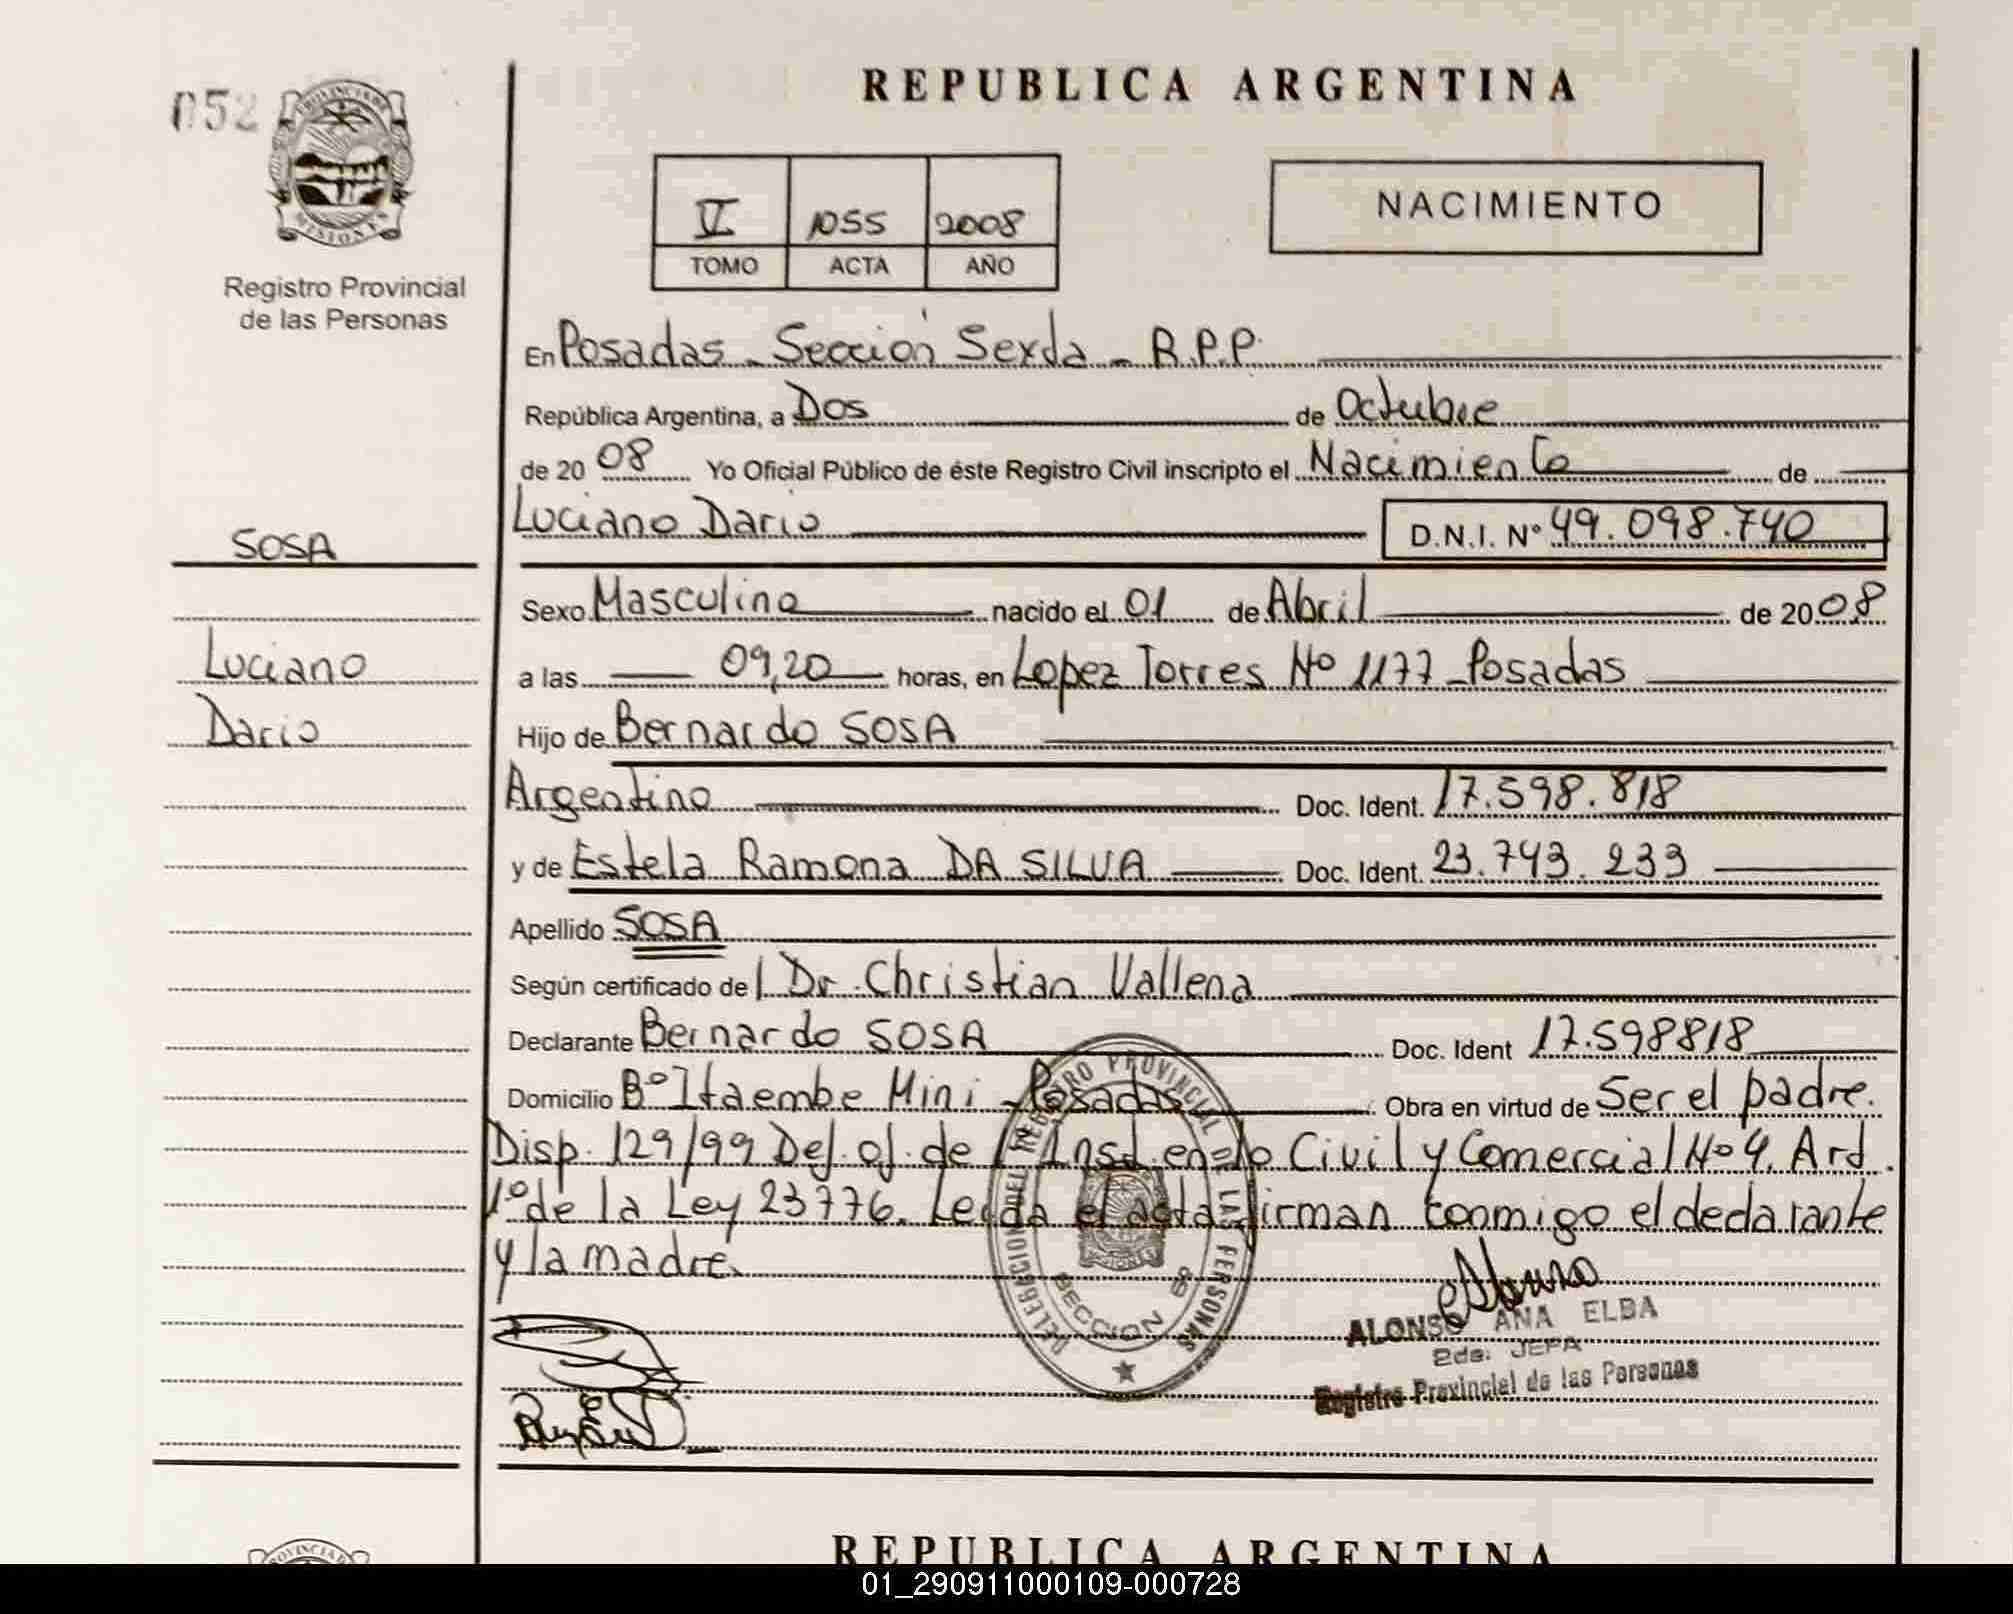 052
PROVINCIA DE
MISIONES
Registro Provincial
de las Personas
SOSA
Luciano
Dario
REPUBLICA ARGENTINA
V 1055 2008
TOMO ACTA AÑO
NACIMIENTO
En Posadas - Sección Sexta - R.P.P.
República Argentina, a Dos de Octubre
de 2008 Yo Oficial Público de éste Registro Civil inscripto el Nacimiento de
Luciano Dario D.N.I. Nº 49.098.740
Sexo Masculino nacido el 01 de Abril de 2008
a las 09,20 horas, en Lopez Torres Nº 1177 - Posadas
Hijo de Bernardo SOSA
Argentino Doc. Ident. 17.598.818
y de Estela Ramona DA SILVA Doc. Ident. 23.743.233
Apellido SOSA
Según certificado de l Dr. Christian Vallena
Declarante Bernardo SOSA Doc. Ident 17.598818
Domicilio Bº Itaembe Mini - Posadas Obra en virtud de Ser el padre.
Disp. 129/99 Def. of. de 1º Inst. en lo Civil y Comercial Nº 4. Art.
1º de la Ley 23776. Leida el acta firman conmigo el declarante
y la madre.
DELEGACION DEL REGISTRO PROVINCIAL DE LAS PERSONAS
SECCION 6ª
ALONSO ANA ELBA
2da. JEFA
Registro Provincial de las Personas
PROVINCIA D
REPUBLICA ARGENTINA
01_290911000109-000728